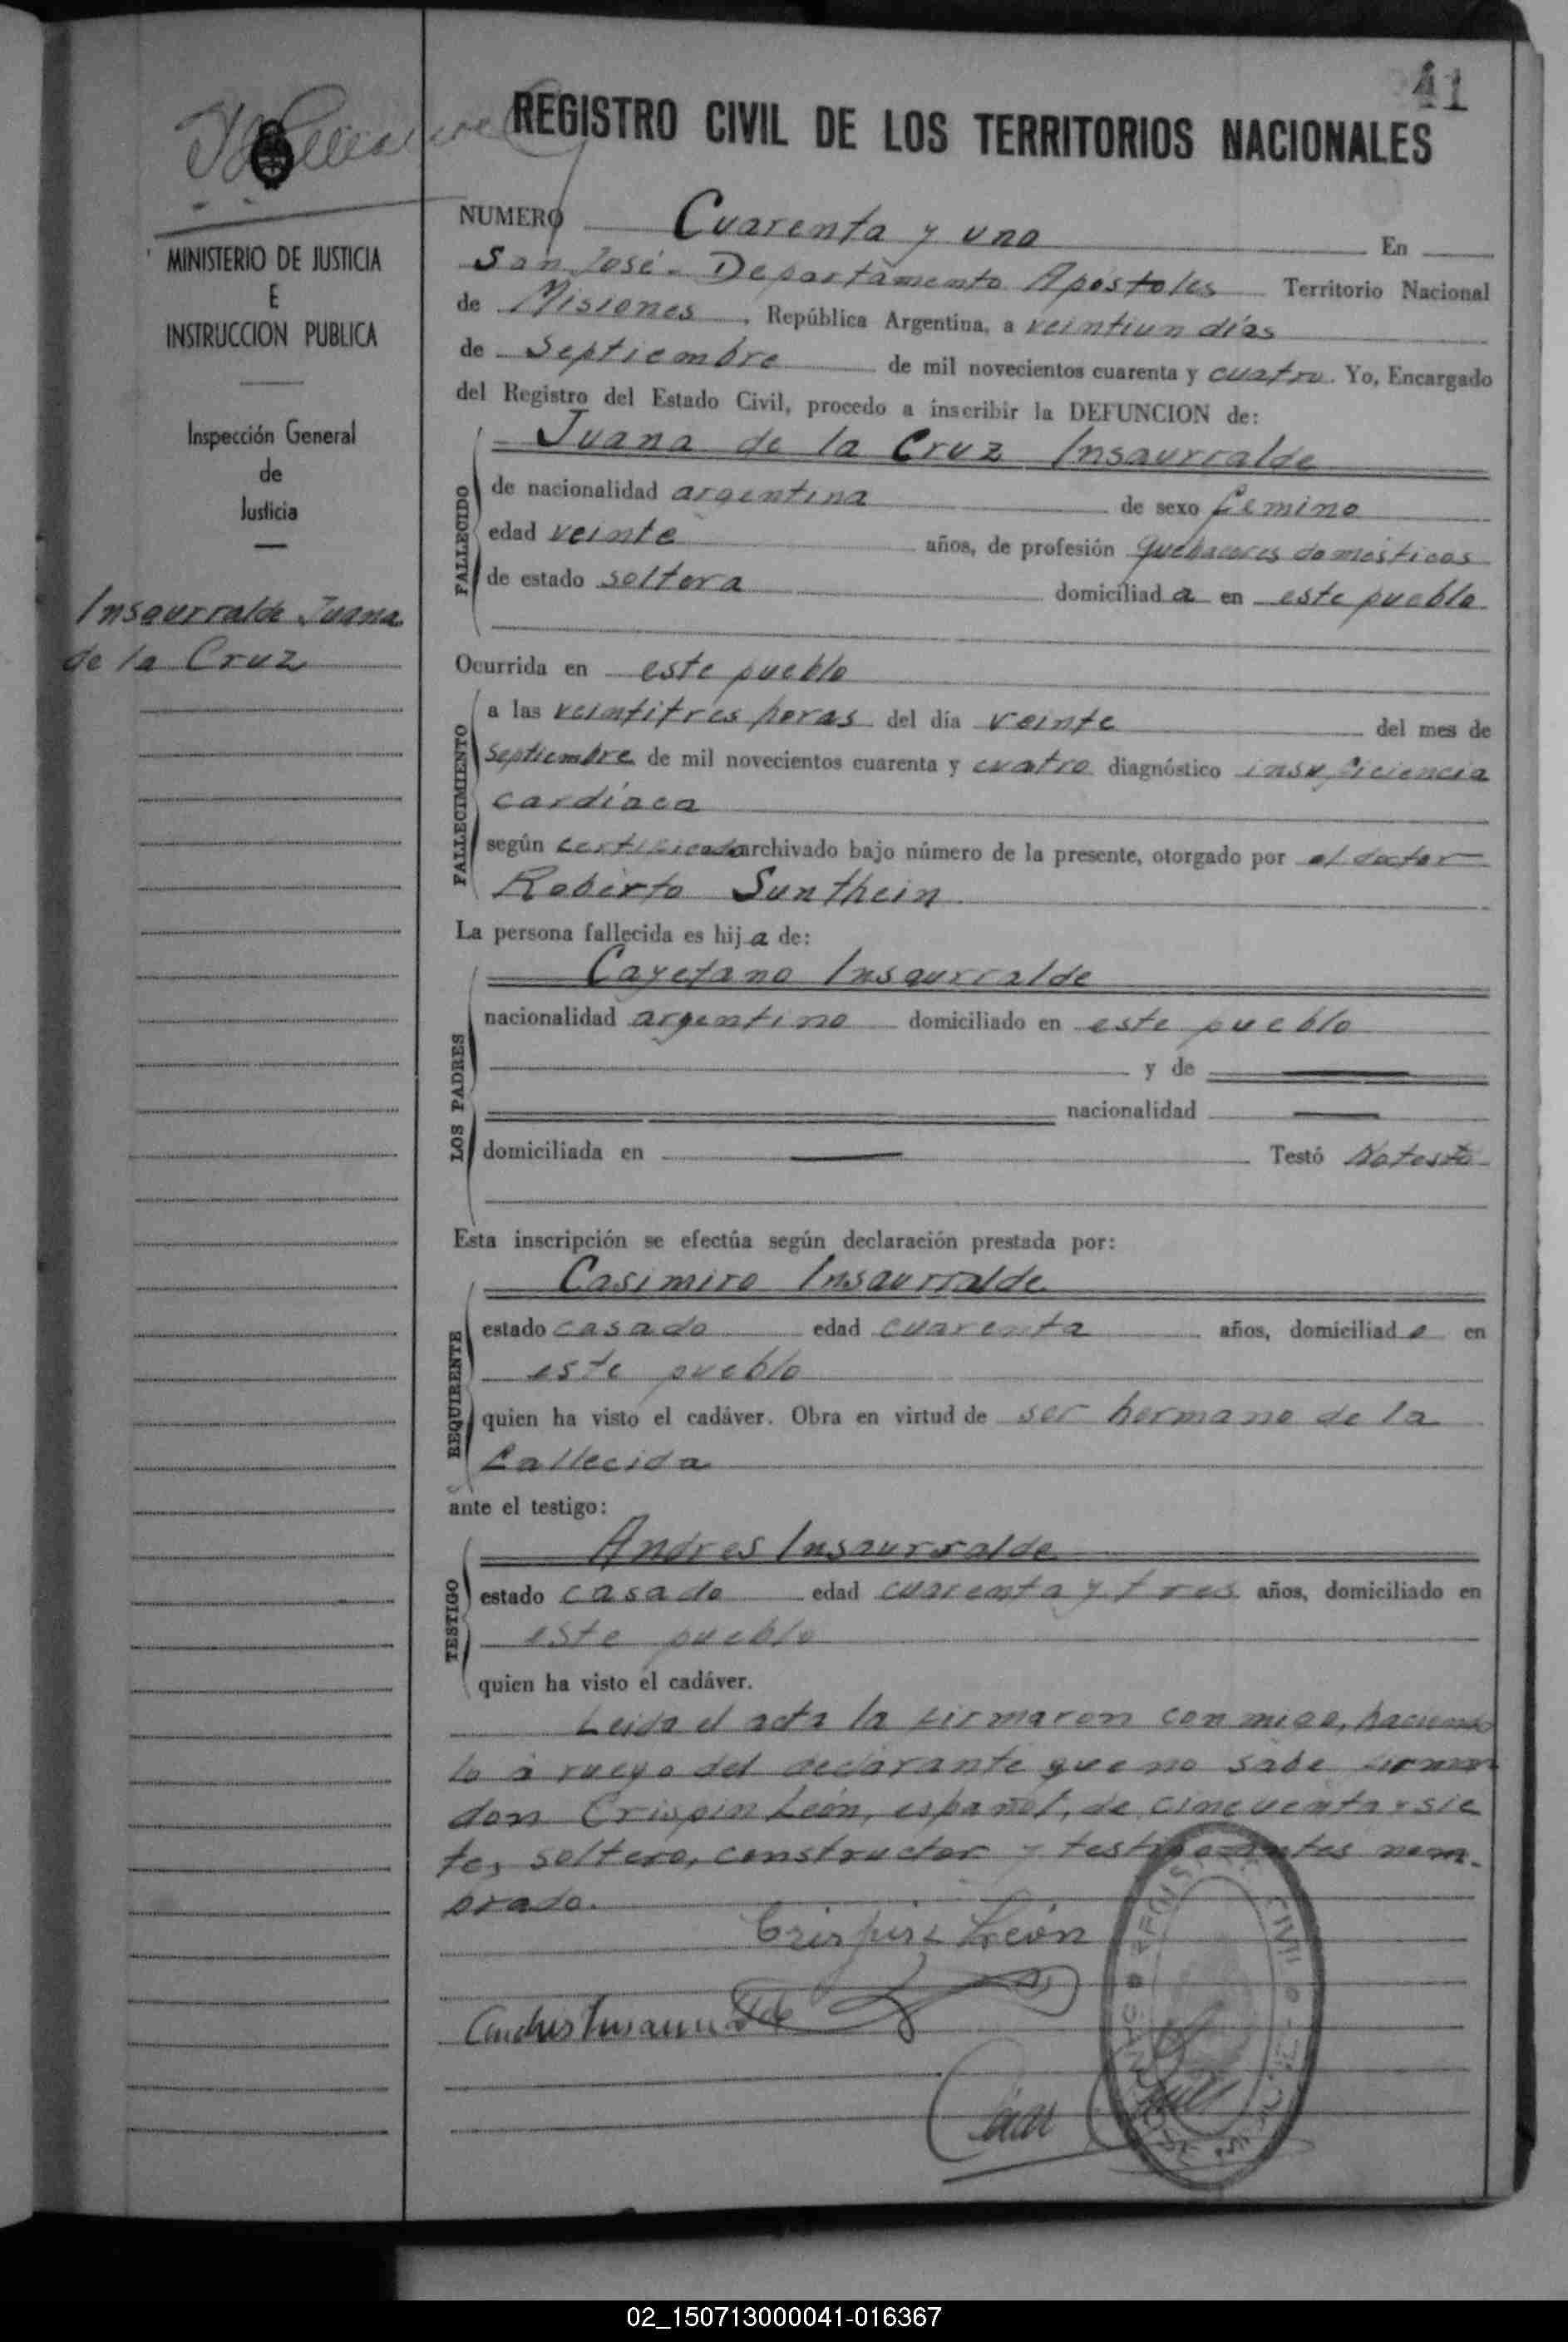 41
REGISTRO CIVIL DE LOS TERRITORIOS NACIONALES
MINISTERIO DE JUSTICIA
E
INSTRUCCION PUBLICA
Inspección General
de
Justicia
Insaurralde Juana
de la Cruz
NUMERO Cuarenta y uno En
San José. Departamento Apóstoles Territorio Nacional
de Misiones, República Argentina, a veintiun días
de Septiembre de mil novecientos cuarenta y cuatro. Yo, Encargado
del Registro del Estado Civil, procedo a inscribir la DEFUNCION de:
Juana de la Cruz Insaurralde
FALLECIDO
de nacionalidad argentina de sexo femino
edad veinte años, de profesión quehaceres domésticos
de estado soltera domiciliada en este pueblo
Ocurrida en este pueblo
FALLECIMIENTO
a las veintitres horas del día veinte del mes de
septiembre de mil novecientos cuarenta y cuatro diagnóstico insuficiencia
cardíaca
según certificado archivado bajo número de la presente, otorgado por el doctor
Roberto Sunthein
La persona fallecida es hija de:
Cayetano Insaurralde
LOS PADRES
nacionalidad argentino domiciliado en este pueblo
y de
nacionalidad
domiciliada en Testó No testó
Esta inscripción se efectúa según declaración prestada por:
Casimiro Insaurralde
REQUIRENTE
estado casado edad cuarenta años, domiciliado en
este pueblo
quien ha visto el cadáver. Obra en virtud de ser hermano de la
fallecida
ante el testigo:
Andres Insaurralde
TESTIGO
estado casado edad cuarenta y tres años, domiciliado en
este pueblo
quien ha visto el cadáver.
Leida el acta la firmaron conmigo, haciendo
lo a ruego del declarante que no sabe firmar
don Crispin León, español, de cincuenta y sie
te, soltero, constructor y testigo antes nom-
brado.
Crispin León
Andres Insaurralde
REGISTRO CIVIL
02_150713000041-016367